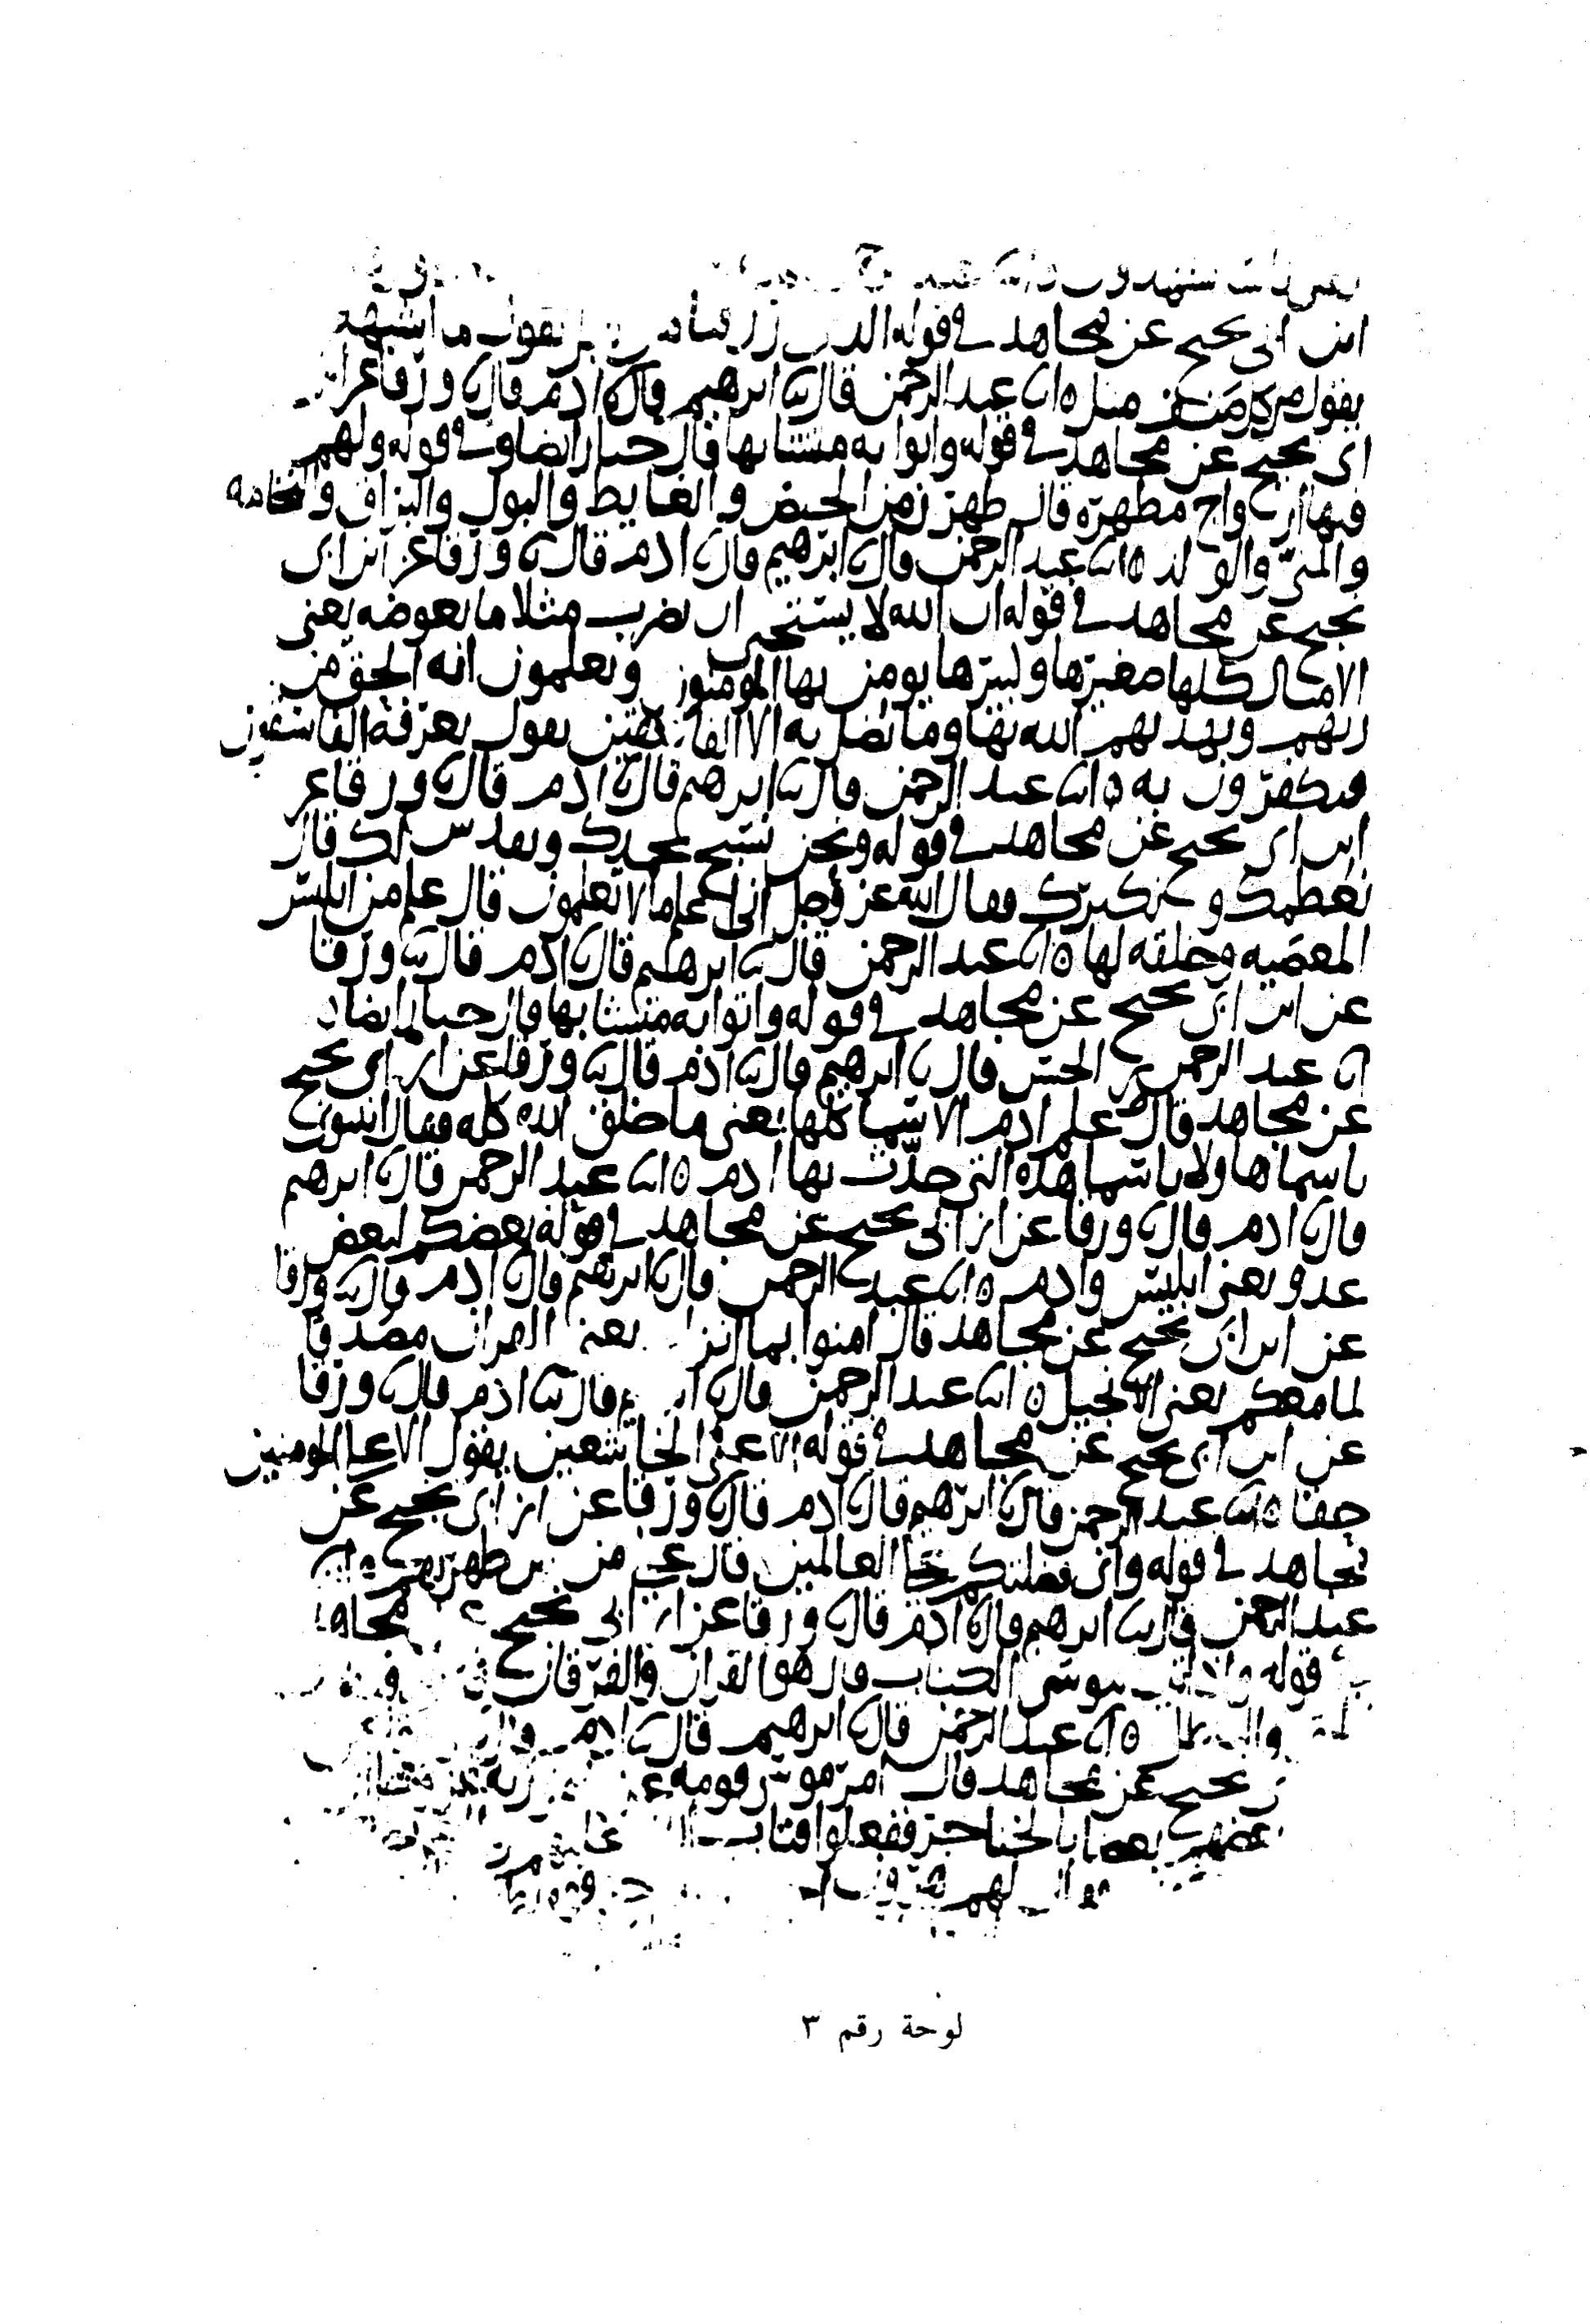 ناس يشهدون
ابن ابي نجيح عن مجاهد في قوله الذي رزقنا من قبل يقول ما اشبهه
يقول من كل صنف مثل ٥ انا عبد الرحمن قال نا ابرهيم قال نا ادم قال نا ورقا عن ابن
ابي نجيح عن مجاهد في قوله واتوا به متشابها قال خيار ايضا وفي قوله ولهم
فيها ازواج مطهرة قال طهرن من الحيض والغايط والبول والبزاق والنخامه
والمني والولد ٥ انا عبد الرحمن قال نا ابرهيم قال نا ادم قال نا ورقا عن ابن ابي
نجيح عن مجاهد في قوله ان الله لا يستحيي ان يضرب مثلا ما بعوضه يعني
الامثال كلها صغيرها وكبيرها يومن بها المومنون ويعلمون انه الحق من
ربهم ويهديهم الله بها وما يضل به الا الفاسقين يقول يعرفه الفاسقون
فيكفرون به ٥ انا عبد الرحمن قال نا ابرهيم قال نا ادم قال نا ورقا عن
ابن ابي نجيح عن مجاهد في قوله ونحن نسبح بحمدك ونقدس لك قال
نعظمك ونكبرك فقال الله عز وجل اني اعلم ما لا تعلمون قال علم من ابليس
المعصيه وخلقه لها ٥ انا عبد الرحمن قال نا ابرهيم قال نا ادم قال نا ورقا
عن ابن ابي نجيح عن مجاهد في قوله واتوا به متشابها قال خيار ايضا ٥
انا عبد الرحمن بن الحسن قال نا ابرهيم قال نا ادم قال نا ورقا عن ابن ابي نجيح
عن مجاهد قال علم ادم الاسما كلها يعني ما خلق الله كله فقال انبئوني
باسما هاولا باسما هذه التي حدثت بها ادم ٥ انا عبد الرحمن قال نا ابرهيم
قال نا ادم قال نا ورقا عن ابن ابي نجيح عن مجاهد في قوله بعضكم لبعض
عدو يعني ابليس وادم ٥ انا عبد الرحمن قال نا ابرهيم قال نا ادم قال نا ورقا
عن ابن ابي نجيح عن مجاهد قال امنوا بما انزلت يعني القران مصدقا
لما معكم يعني الانجيل ٥ انا عبد الرحمن قال نا ابرهيم قال نا ادم قال نا ورقا
عن ابن ابي نجيح عن مجاهد في قوله الا على الخاشعين يقول الا على المومنين
حقا ٥ انا عبد الرحمن قال نا ابرهيم قال نا ادم قال نا ورقا عن ابن ابي نجيح عن
مجاهد في قوله واني فضلتكم على العالمين قال على من بين ظهريهم ٥ انا
عبد الرحمن قال نا ابرهيم قال نا ادم قال نا ورقا عن ابن ابي نجيح مجاهد
قوله موسى الكتاب قال هو القران والفرقان
والباطل ٥ انا عبد الرحمن قال نا ابرهيم قال نا ادم
نجيح عن مجاهد قال امر موسى قومه عن ربه
بعضهم بعضا بالخناجر ففعلوا فتاب
لهم
لوحة رقم ٣